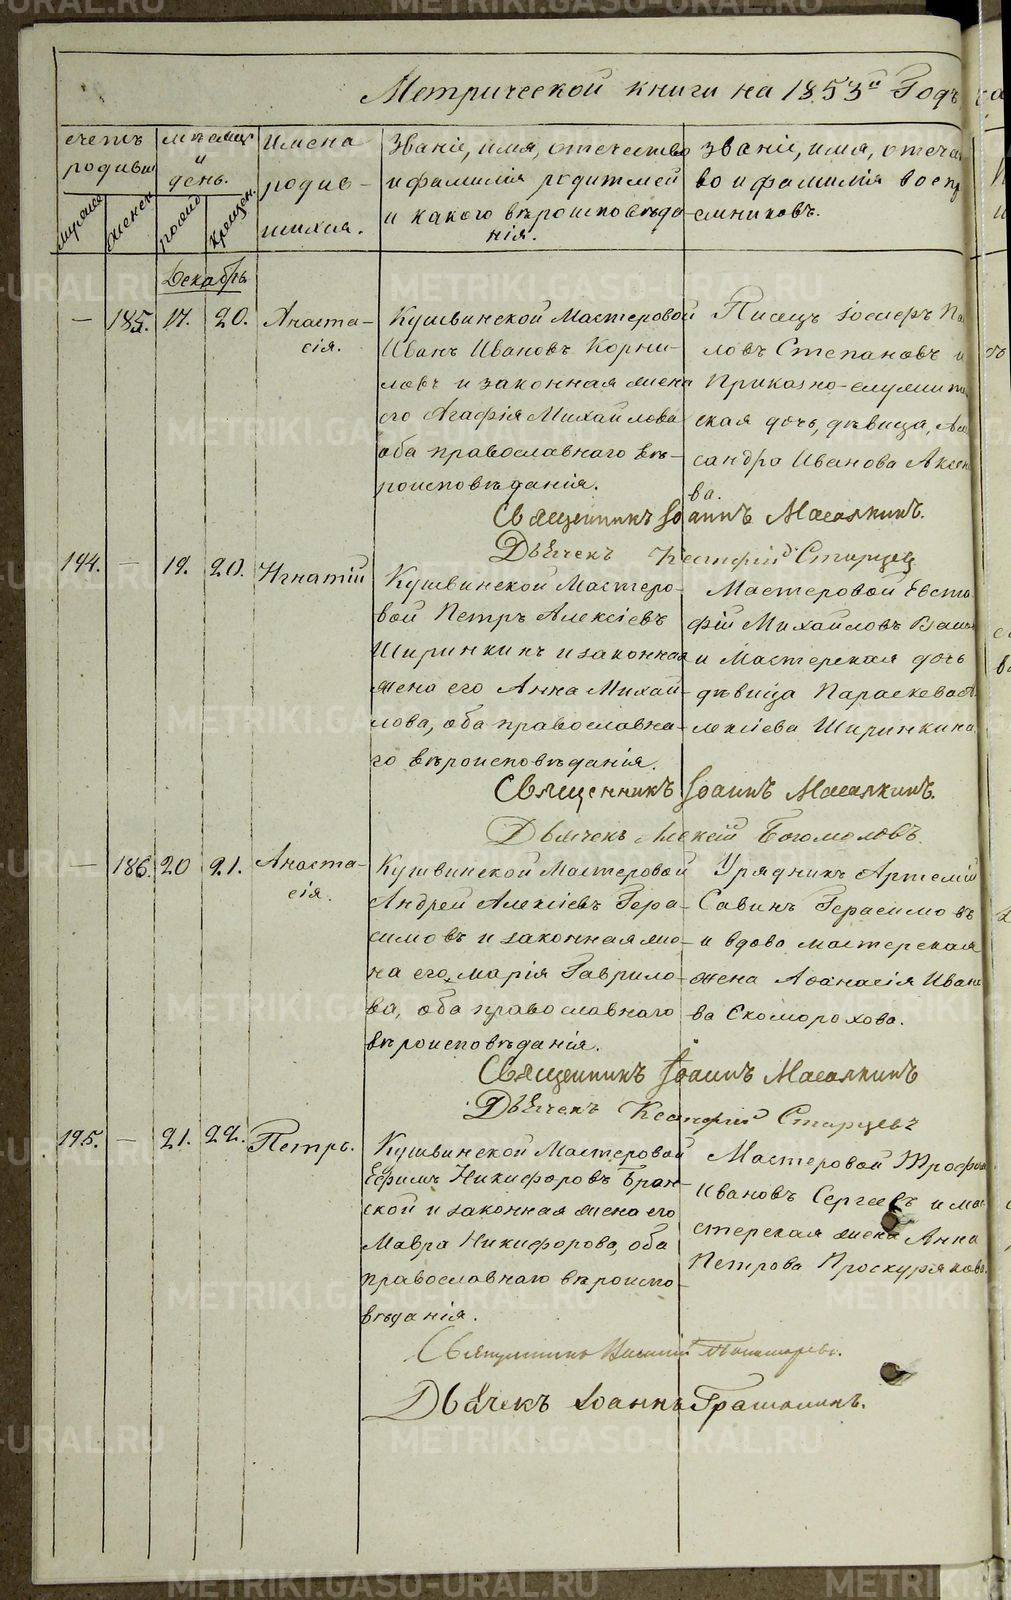 Метрической книги на 1853й Годъ
счетъ родивш
мѣсяцъ и день.
Имена родив-
шихся.
Званіе, имя, отечество
и фамилія родителей
и какого вѣроисповѣда-
нія.
званіе, имя, отечест
во и фамилія воспр
емниковъ.
мужеска
женска
рожд
крещен.
Декабрь
— 185. 17. 20. Анаста-
сія.
Кушвинской Мастеровой
Иванъ Ивановъ Корни-
ловъ и законная жена
его Агафія Михайлова
оба православнаго вѣ-
роисповѣданія.
Писецъ Іосифъ Па
ловъ Степановъ и
Приказно-служит
ская дочь, дѣвица, Але
сандра Иванова Аксен
ва.
Священникъ Іоаннъ Масалкинъ.
Дьячекъ Ксанфій Старцев
194. — 19. 20. Игнатій
Кушвинской Мастеро-
вой Петръ Алексіевъ
Ширинкинъ и законная
жена его Анна Михай-
лова, оба православна-
го вѣроисповѣданія.
Мастеровой Евста
фій Михайловъ
и Мастерская дочь
дѣвица Параскева А
лексіева Ширинкина
Священникъ Іоаннъ Масалкинъ.
Дьячекъ Алексій Богомоловъ.
— 186. 20 21. Анаста-
сія.
Кушвинской Мастеровой
Андрей Алексіевъ Гера-
симовъ и законная же-
на его, Марія Гаврило-
ва, оба православнаго
вѣроисповѣданія.
Урядникъ Артемій
Савинъ Герасимовъ
и вдова мастерская
жена Афанасія Ивано
ва Скоморохова.
Священникъ Іоаннъ Масалкинъ
Дьячекъ Ксанфій Старцевъ
195. — 21. 22. Петръ.
Кушвинской Мастеровой
Ефимъ Никифоровъ Бран-
ской и законная жена его
Мавра Никифорова, оба
православнаго вѣроиспо-
вѣданія.
Мастеровой Трофим
Ивановъ Сергеевъ и ма-
стерская жена Анна
Петрова Проскурякова.
Священникъ Василій
Дьячекъ Іоаннъ Грамолинъ.
METRIKI.GASO-URAL.RU